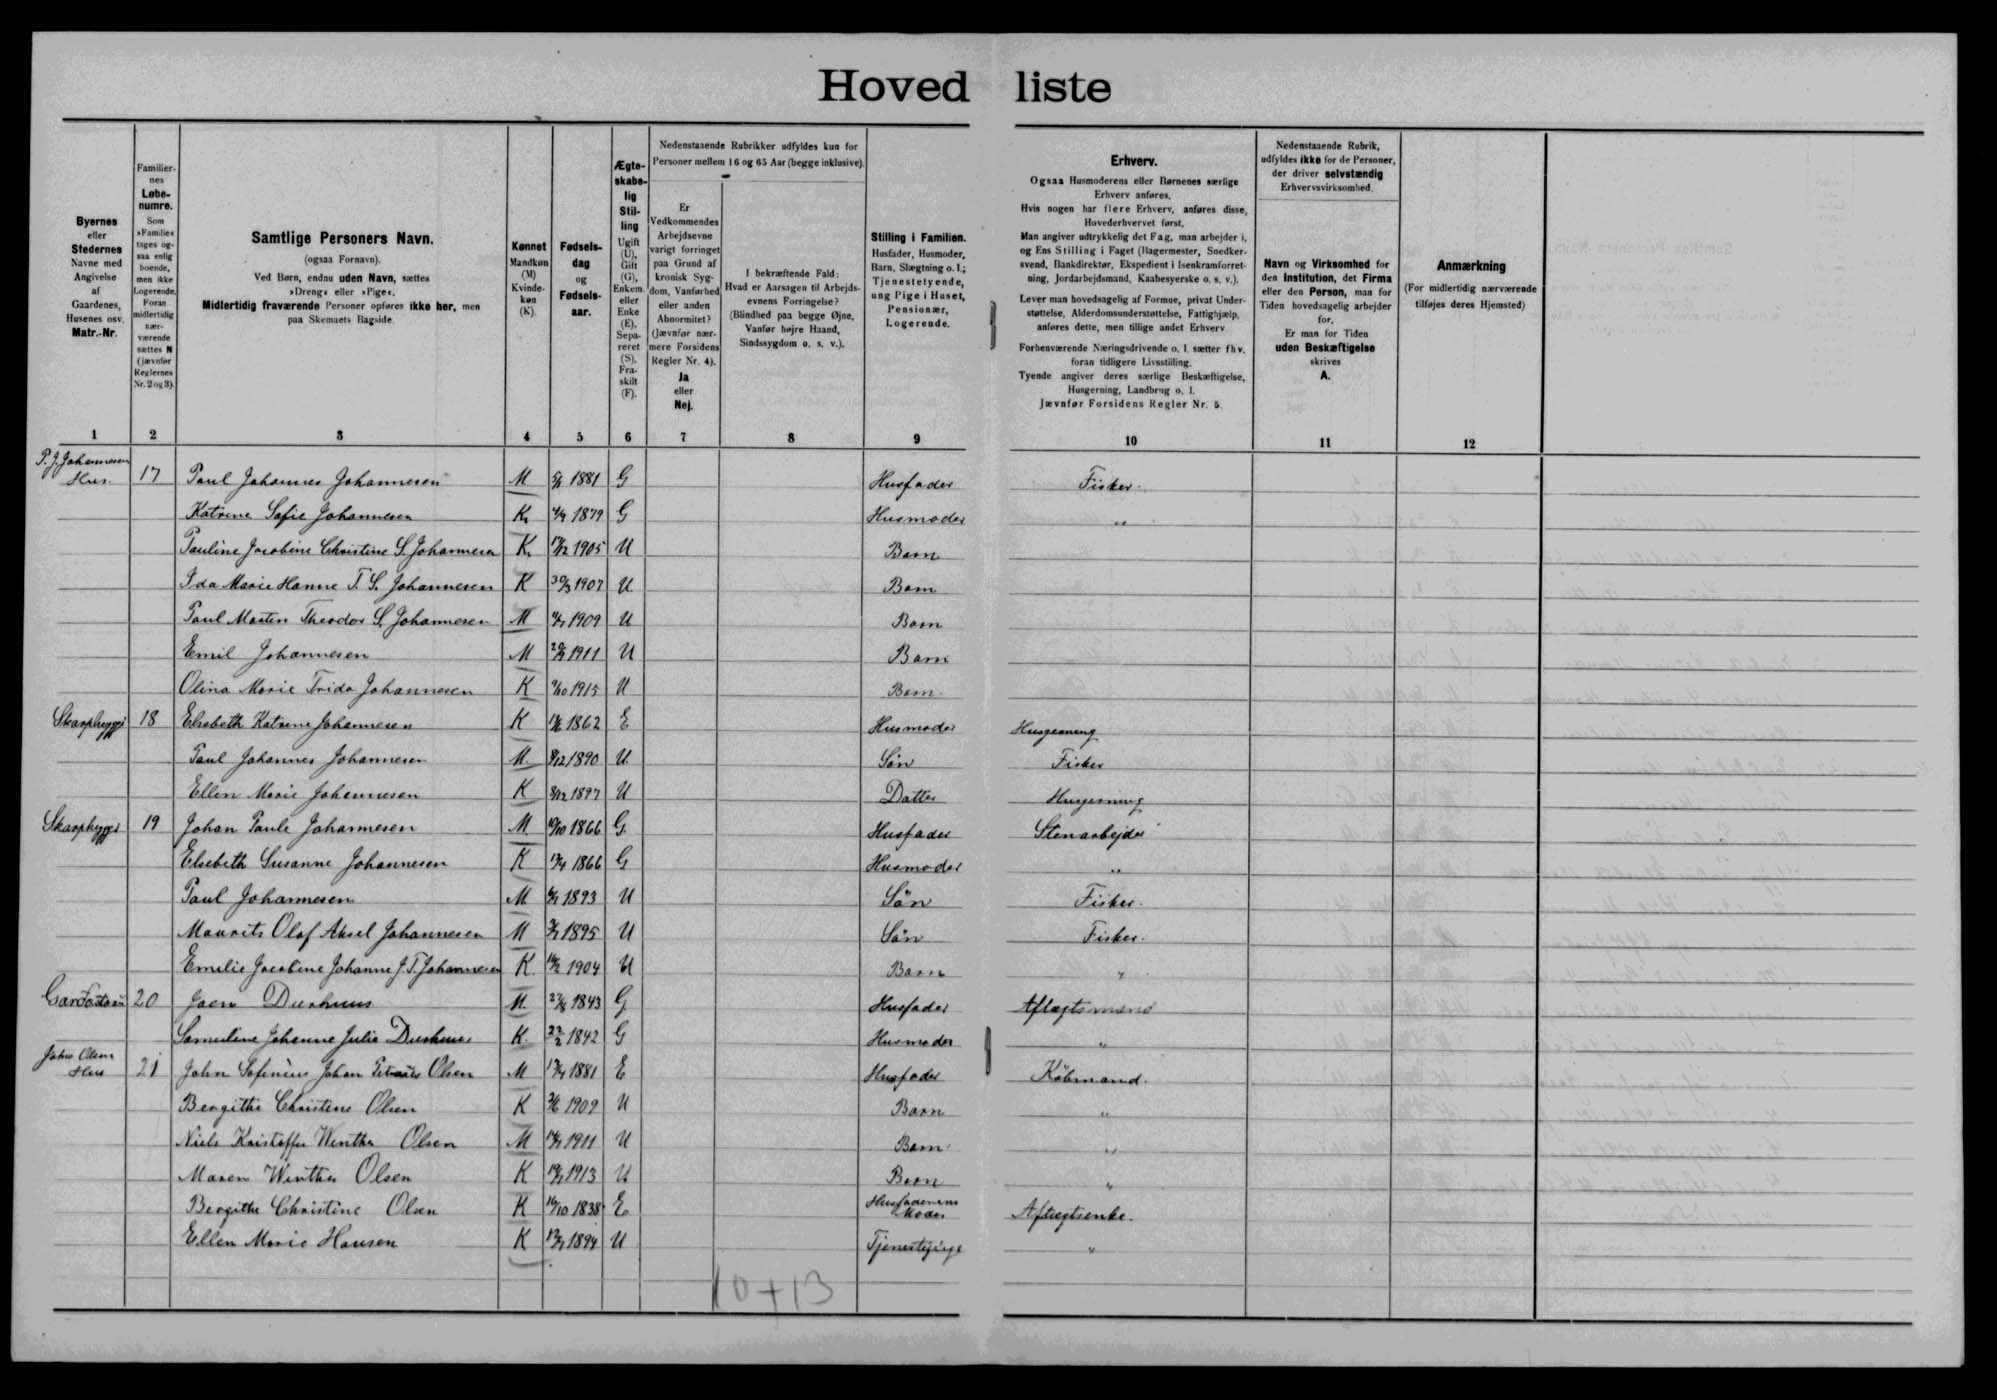 Hovedliste
Byernes
eller
Stedernes
Navne med
Angivelse
af
Gaardenes,
Husenes osv.
Matr.-Nr.
Familier-
nes
Løbe-
numre.
Som
»Familie«
tages og-
saa enlig
boende,
men ikke
Logerende.
Foran
midlertidig
nær-
værende
sættes N
(jævnfør
Reglernes
Nr. 2 og 3).
Samtlige Personers Navn.
(ogsaa Fornavn).
Ved Børn, endnu uden Navn, sættes
»Dreng« eller »Pige«.
Midlertidig fraværende Personer opføres ikke her, men
paa Skemaets Bagside.
Kønnet
Mandkøn
(M)
Kvinde-
køn
(K).
Fødsels-
dag
og
Fødsels-
aar.
Ægte-
skabe-
lig
Stil-
ling
Ugift
(U),
Gift
(G),
Enkem.
eller
Enke
(E),
Sepa-
reret
(S),
Fra-
skilt
(F).
Nedenstaaende Rubrikker udfyldes kun for
Personer mellem 16 og 65 Aar (begge inklusive).
Er
Vedkommendes
Arbejdsevne
varigt forringet
paa Grund af
kronisk Syg-
dom, Vanførhed
eller anden
Abnormitet?
(Jævnfør nær-
mere Forsidens
Regler Nr. 4).
Ja
eller
Nej.
I bekræftende Fald:
Hvad er Aarsagen til Arbejds-
evnens Forringelse?
(Blindhed paa begge Øjne,
Vanfør højre Haand,
Sindssygdom o. s. v.).
Stilling i Familien.
Husfader, Husmoder,
Barn, Slægtning o. l.;
Tjenestetyende,
ung Pige i Huset,
Pensionær,
Logerende.
Erhverv.
Ogsaa Husmoderens eller Børnenes særlige
Erhverv anføres.
Hvis nogen har flere Erhverv, anføres disse,
Hovederhvervet først.
Man angiver udtrykkelig det Fag, man arbejder i,
og Ens Stilling i Faget (Bagermester, Snedker-
svend, Bankdirektør, Ekspedient i Isenkramforret-
ning, Jordarbejdsmand, Kaabesyerske o. s. v.).
Lever man hovedsagelig af Formue, privat Under-
støttelse, Alderdomsunderstøttelse, Fattighjælp,
anføres dette, men tillige andet Erhverv.
Forhenværende Næringsdrivende o. l. sætter fhv.
foran tidligere Livsstilling.
Tyende angiver deres særlige Beskæftigelse,
Husgerning, Landbrug o. l.
Jævnfør Forsidens Regler Nr. 5.
Nedenstaaende Rubrik,
udfyldes ikke for de Personer,
der driver selvstændig
Erhvervsvirksomhed.
Navn og Virksomhed for
den Institution, det Firma
eller den Person, man for
Tiden hovedsagelig arbejder
for.
Er man for Tiden
uden Beskæftigelse
skrives
A.
Anmærkning
(For midlertidig nærværende
tilføjes deres Hjemsted)
1 2 3 4 5 6 7 8 9 10 11 12
P. J. Johannesen
Hus 17 Paul Johannes Johannesen M 1881 G Husfader Fisker.
Katrine Sofie Johannesen K 1879 G Husmoder "
Pauline Jacobine Christine S. Johannesen K 1905 U Barn
Ida Marie Hanne T. S. Johannesen K 1907 U Barn
Paul Morten Theodor S. Johannesen M 1909 U Barn
Emil Johannesen M 1911 U Barn
Olina Marie Frida Johannesen K 1915 U Barn
18 Elsebeth Katrine Johannesen K 1862 E Husmoder Husgerning
Paul Johannes Johannesen M. 8/12 1890 U Sön Fisker
Ellen Marie Johannesen K 1897 U Datter Husgerning
19 Johan Paule Johannesen M 1866 G Husfader Stenarbejder
Elsebeth Susanne Johannesen K 1866 G Husmoder "
Paul Johannesen M 1893 U Sön Fisker.
Maurits Olaf Aksel Johannesen M 1895 U Sön Fisker.
Emilie Jacobine Johanne J. T. Johannesen K. 1904 U Barn "
20 Joen Durhuus M. 1843 G Husfader Aftægtsmand
Samuline Johanne Julia Durhuus K. 22/2 1842 G Husmoder "
John Olsens
Hus 21 John Sofinius Johan Olsen M 1881 E Husfader Købmand.
Bergithe Christine Olsen K 1909 U Barn "
Niels Kristoffer Winther Olsen M 1911 U Barn "
Maren Winther Olsen K 1913 U Barn "
Bergithe Christine Olsen K 16/10 1838 E Husfaderens Moder Aftægtsenke.
Ellen Marie Hansen K 1894 U Tjenestepige "
10+13